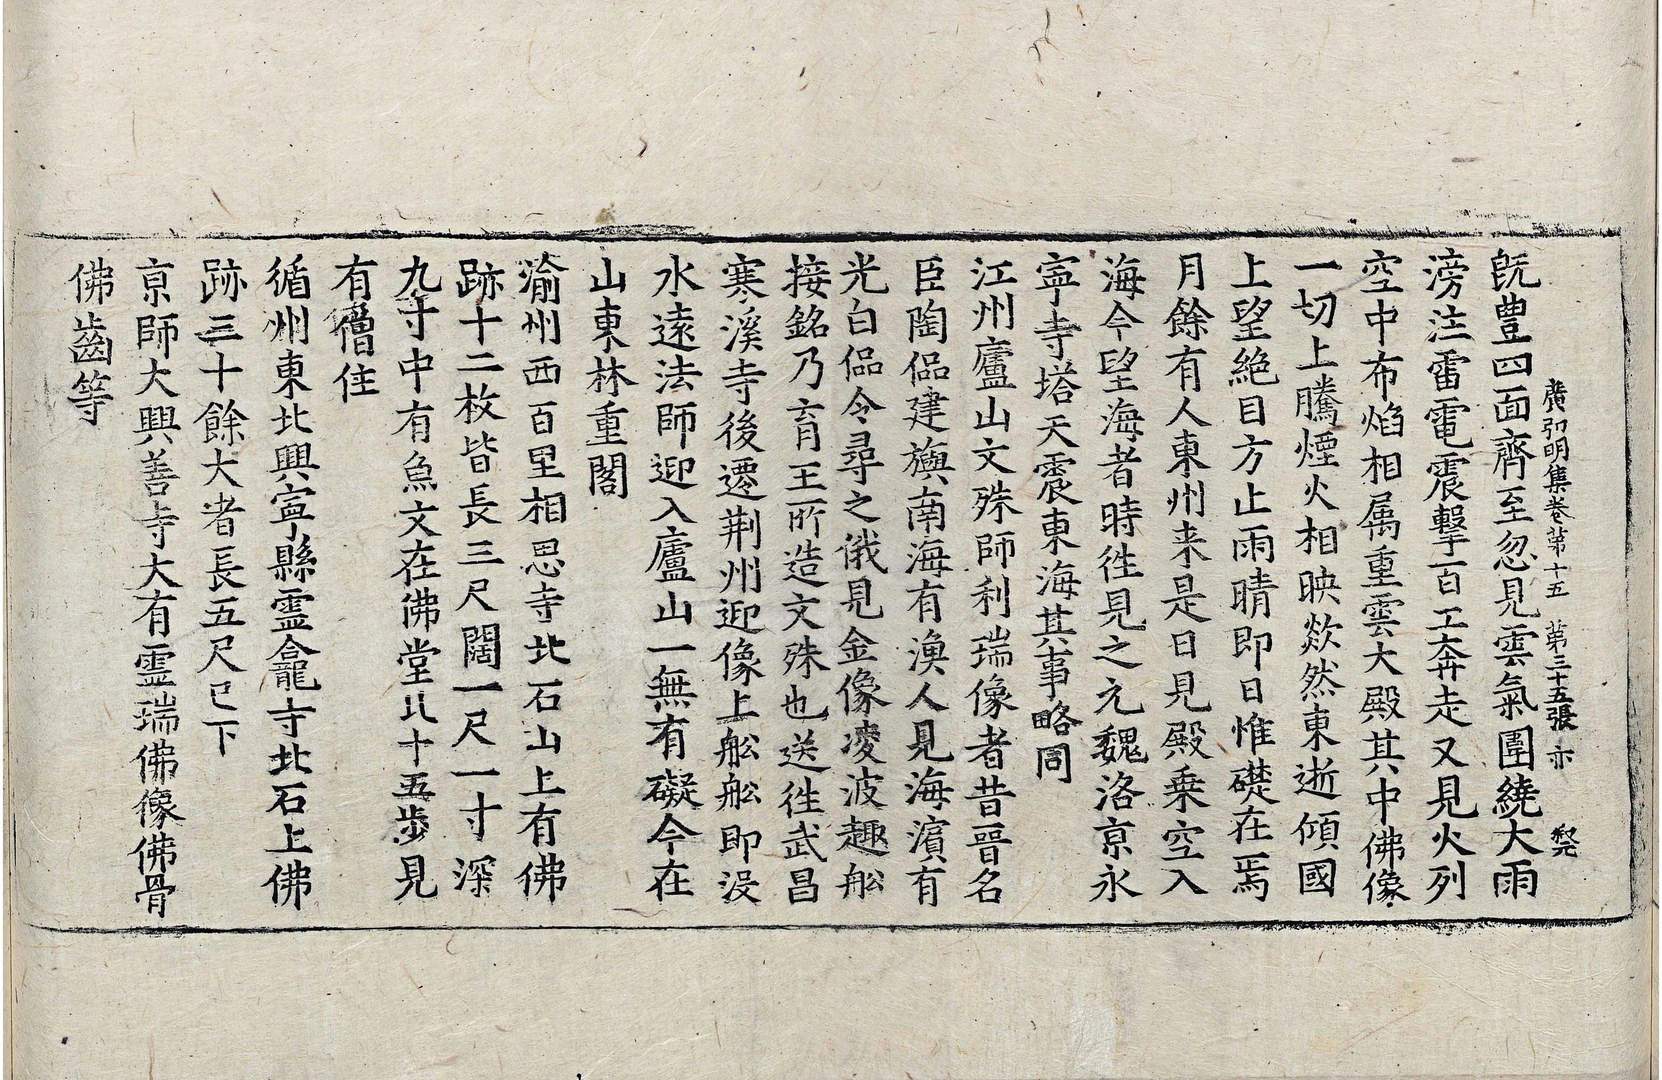 廣弘明集卷第十五 第三十五張 亦
既豊四面齊至忽見雲氣圍繞大雨
滂注雷電震擊百工奔走又見火列
空中布焰相属重雲大殿其中佛像
一切上騰煙火相映欻然東逝傾國
上望絶目方止雨晴即日惟礎在焉
月餘有人東州来是日見殿乗空入
海今望海者時徃見之元魏洛京永
寧寺塔天震東海其事略同
江州廬山文殊師利瑞像者昔晉名
臣陶侃建旟南海有漁人見海濱有
光白侃令尋之俄見金像凌波趣舩
接銘乃育王所造文殊也送徃武昌
寒溪寺後遷荆州迎像上舩舩即没
水遠法師迎入廬山一無有礙今在
山東林重閣
渝州西百里相思寺北石山上有佛
跡十二枚皆長三尺闊一尺一寸深
九寸中有魚文在佛堂北十五步見
有僧住
循州東北興寧縣霊龕寺北石上佛
跡三十餘大者長五尺已下
京師大興善寺大有霊瑞佛像佛骨
佛齒等